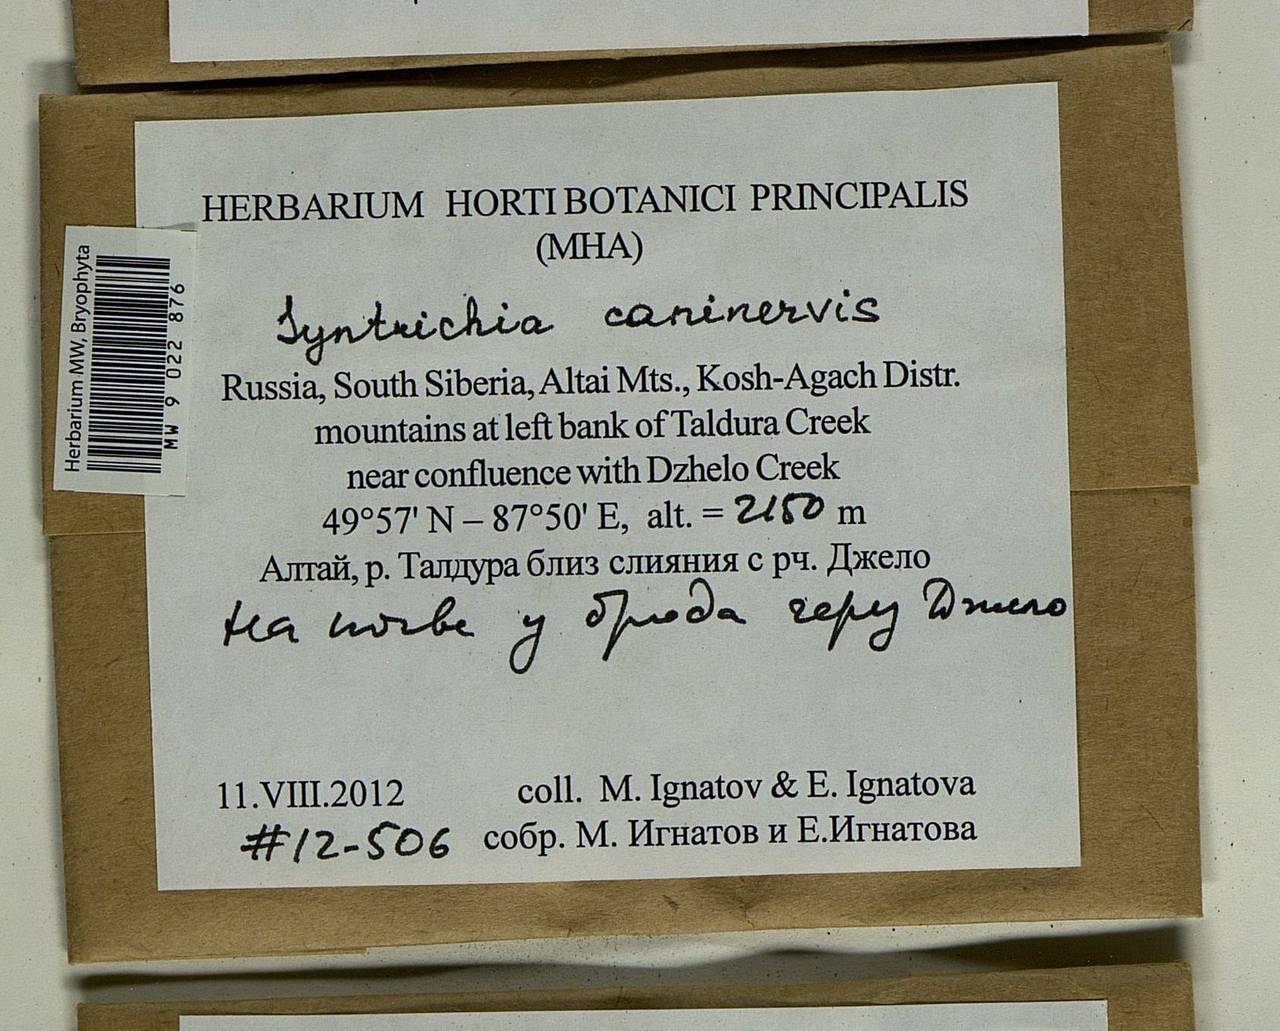 HERBARIUM HORTI BOTANICI PRINCIPALIS
(MHA)
Syntrichia caninervis
Russia, South Siberia, Altai Mts., Kosh-Agach Distr.
mountains at left bank of Taldura Creek
near confluence with Dzhelo Creek
49°57' N – 87°50' E, alt. = 2150 m
Алтай, р. Талдура близ слияния с рч. Джело
На почве у брода через Джело
11.VIII.2012 coll. M. Ignatov & E. Ignatova
#12-506 собр. М. Игнатов и Е.Игнатова
Herbarium MW, Bryophyta
MW 9 022 876